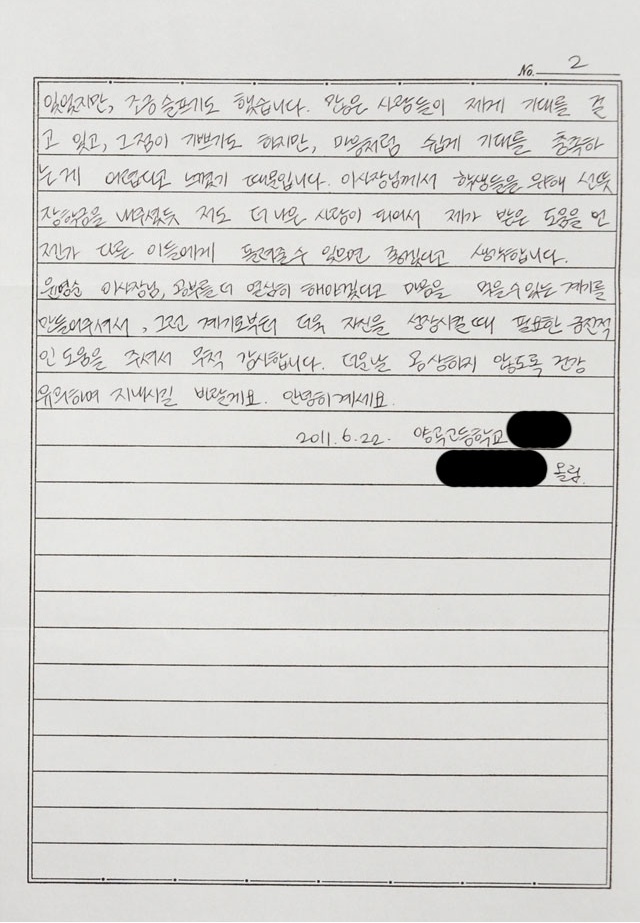 No. 2
있었지만, 조금 슬프기도 했습니다. 많은 사람들이 제게 기대를 걸
고 있고, 그점이 기쁘기도 하지만, 마음처럼 쉽게 기대를 충족하
는게 어렵다고 느꼈기 때문입니다. 이사장님께서 학생들을 위해 선뜻
장학금을 내주셨듯 저도 더 나은 사람이 되어서 제가 받은 도움을 언
젠가 다른 이들에게 돌려줄 수 있으면 좋겠다고 생각합니다.
윤영순 이사장님, 공부를 더 열심히 해야겠다고 마음을 먹을 수 있는 계기를
만들어주셔서, 그런 계기로부터 더욱 자신을 성장시킬 때 필요한 금전적
인 도움을 주셔서 무척 감사합니다. 더운날 몸상하지 않도록 건강
유의하며 지내시길 바랄게요. 안녕히계세요.
2011. 6. 22. 양곡고등학교
올림.